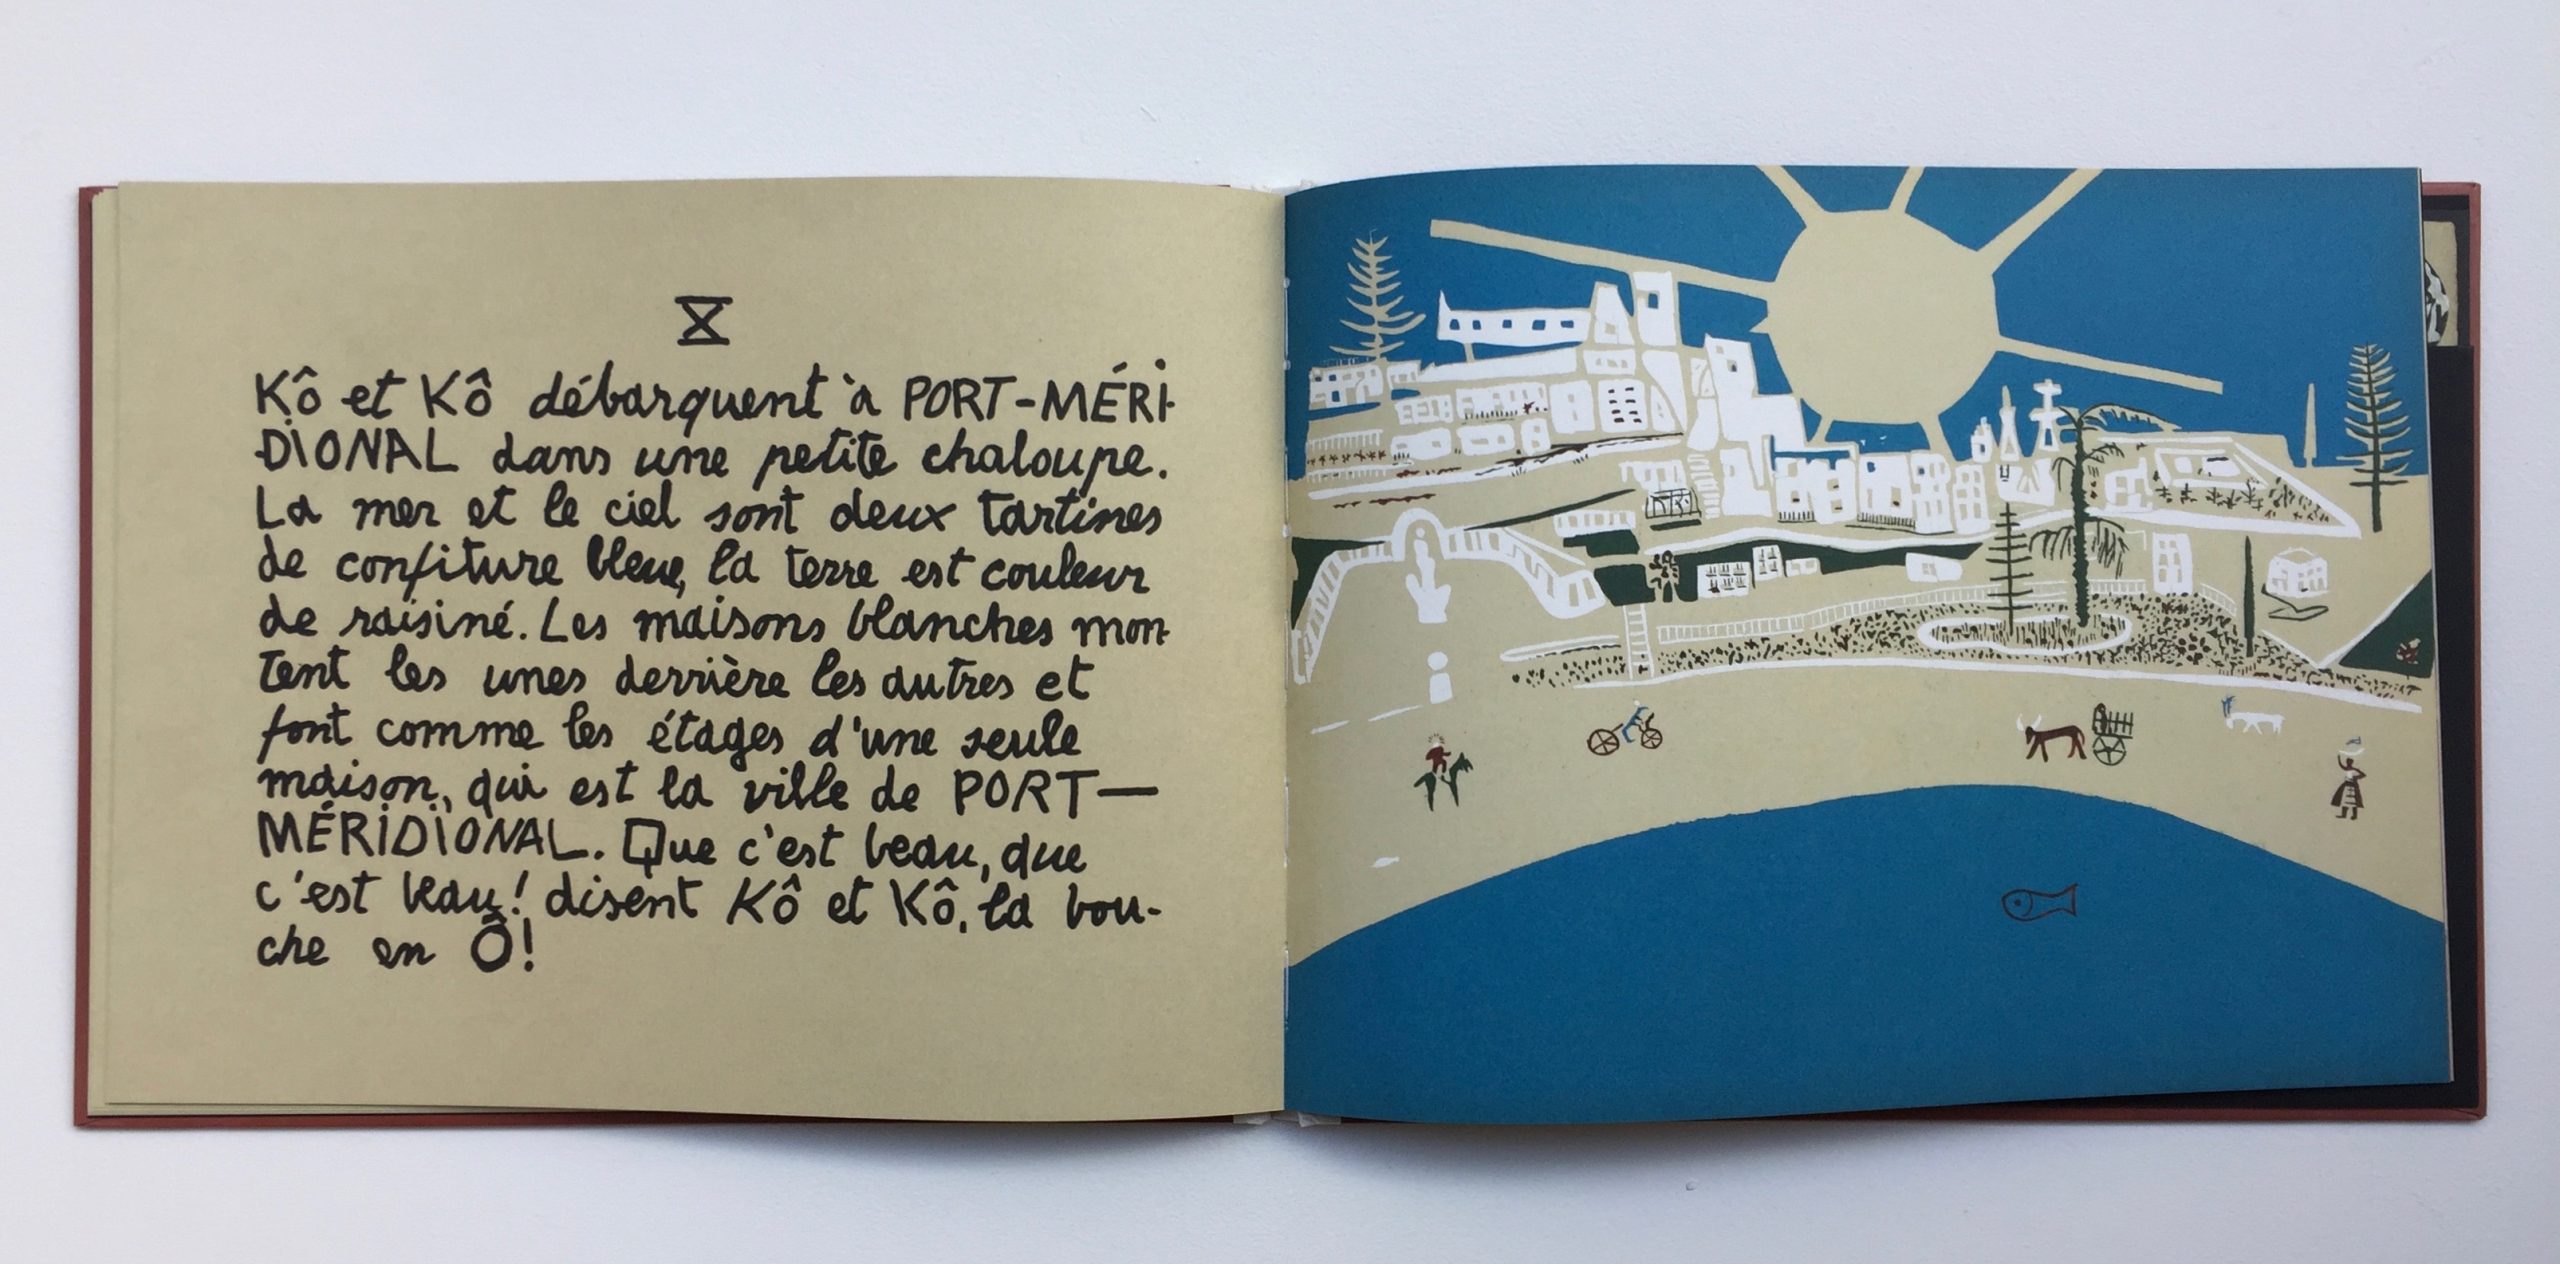 X
Kô et Kô débarquent à PORT-MÉRI-
DIONAL dans une petite chaloupe.
La mer et le ciel sont deux tartines
de confiture bleue, la terre est couleur
de raisiné. Les maisons blanches mon-
tent les unes derrière les autres et
font comme les étages d'une seule
maison, qui est la ville de PORT-
MÉRIDIONAL. Que c'est beau, que
c'est beau! disent Kô et Kô, la bou-
che en Ô!